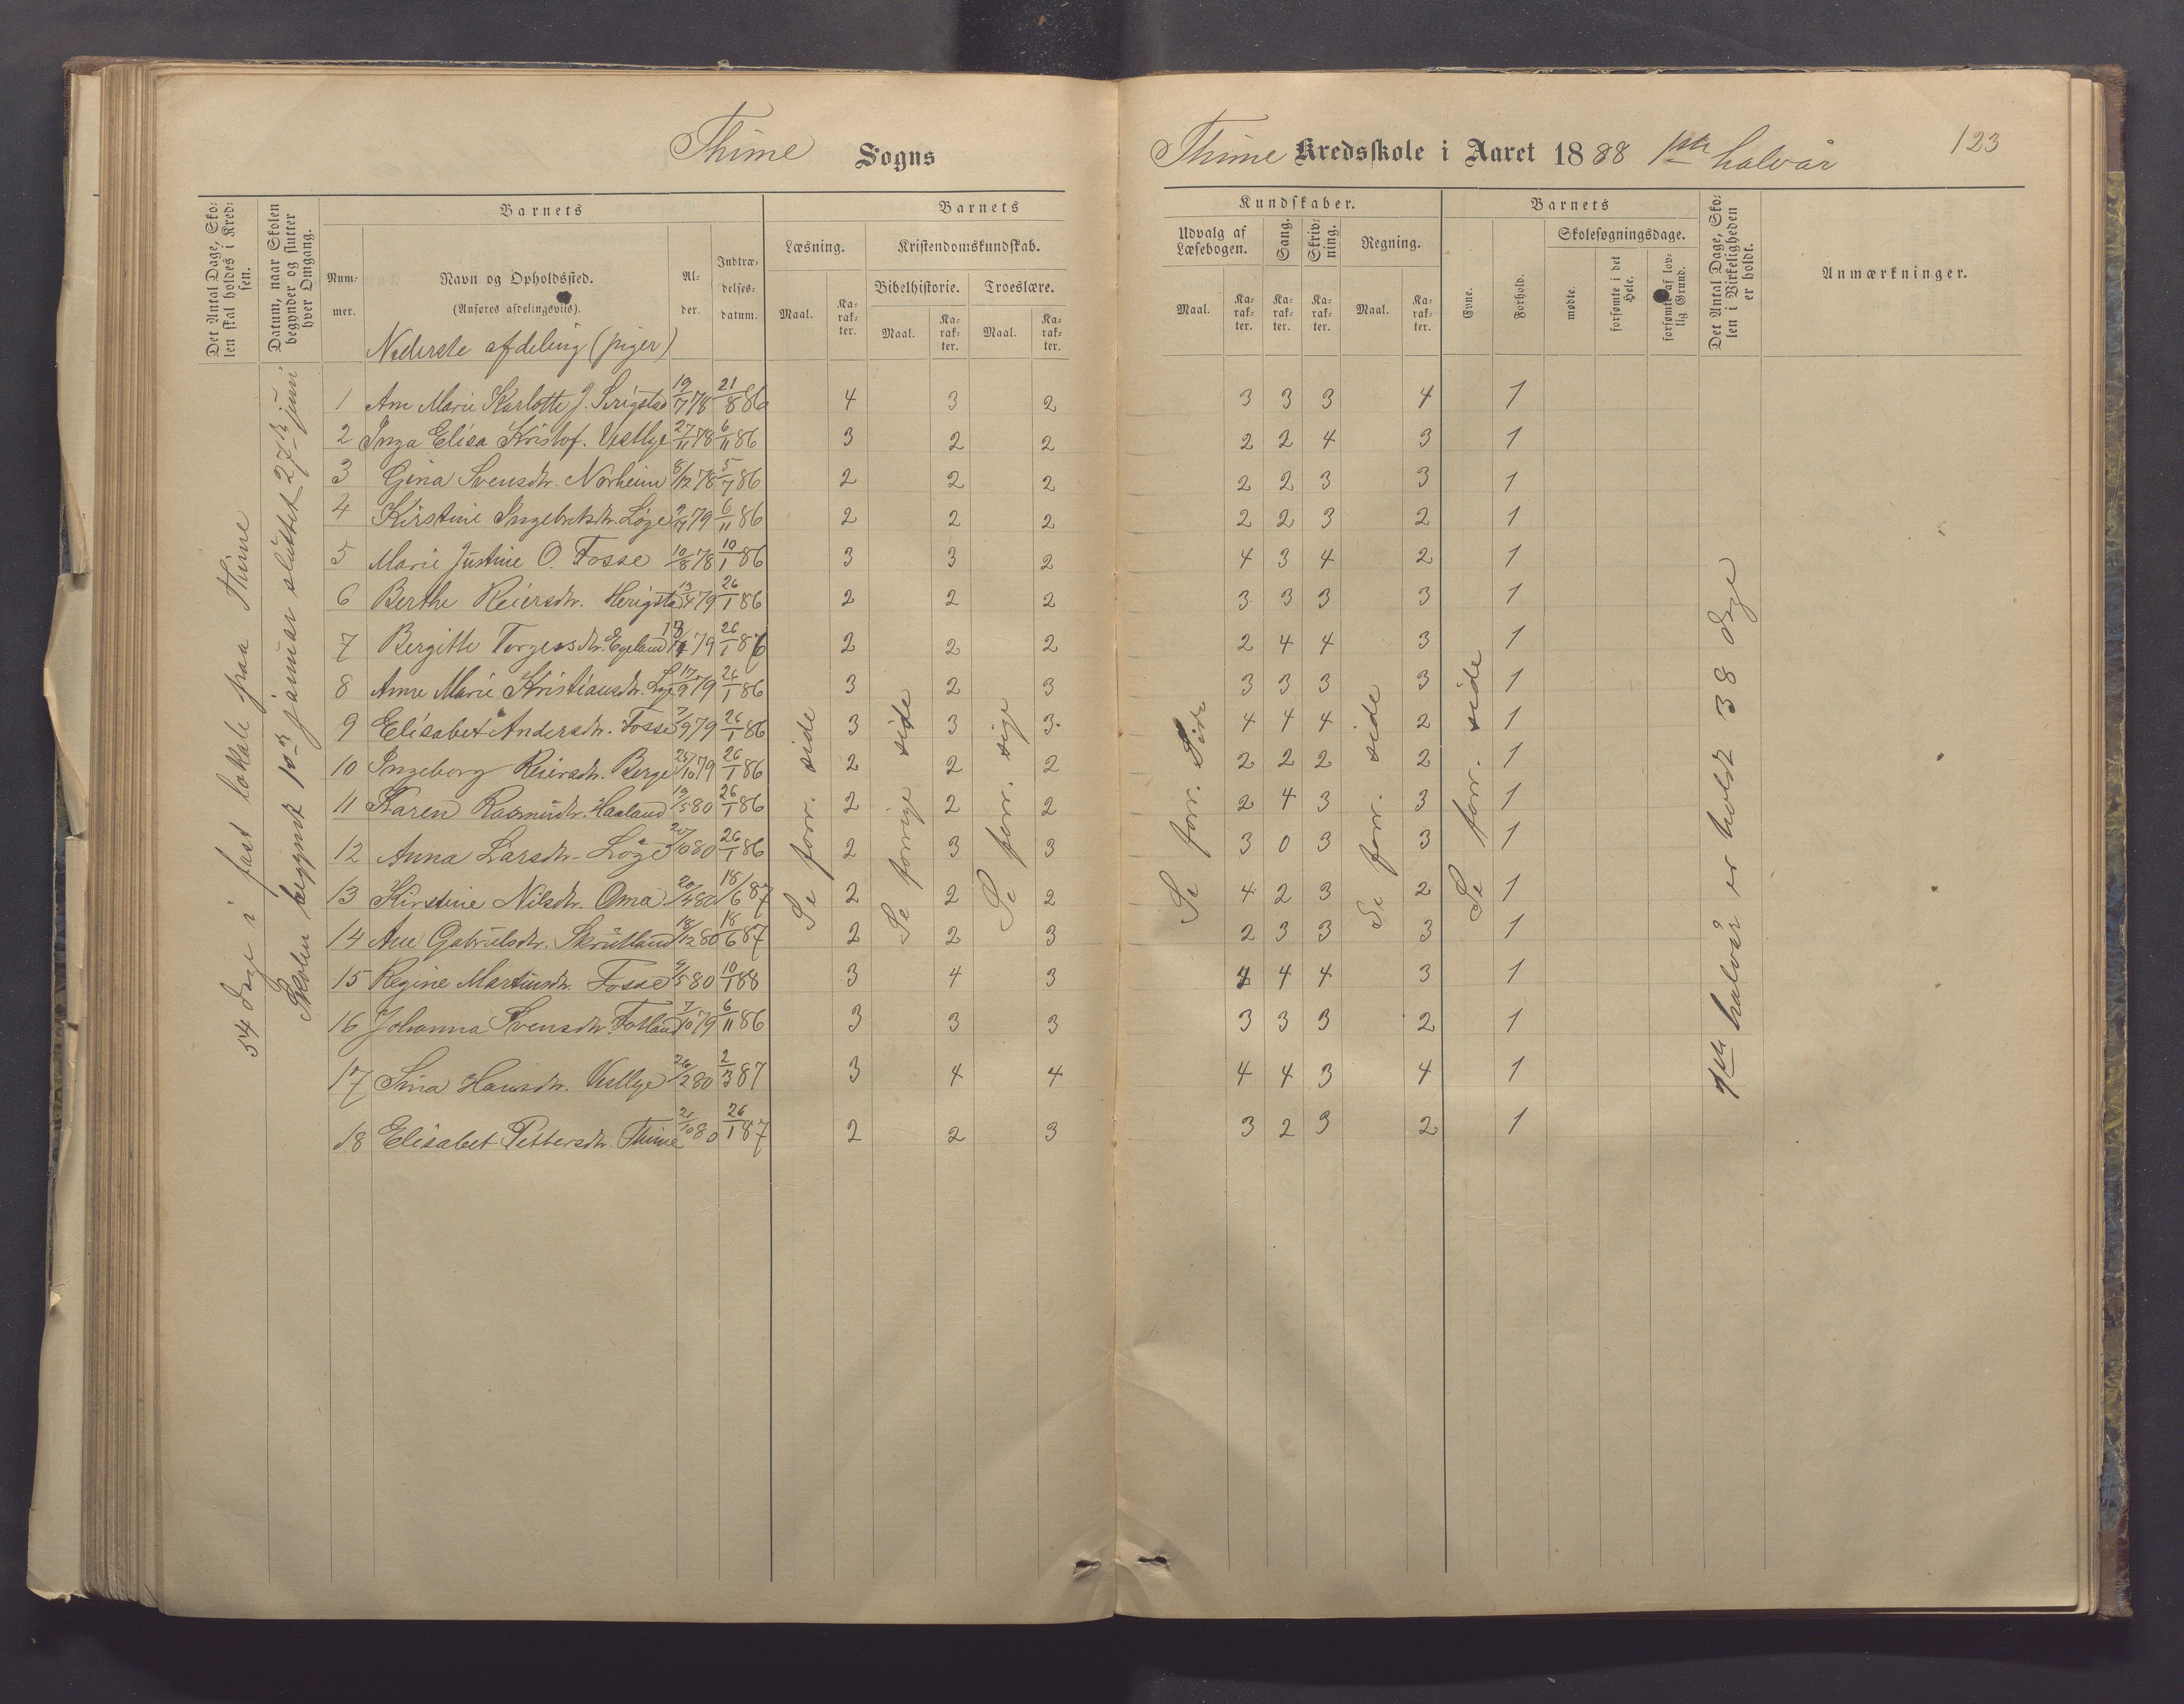 Thime Sogns
Thime Kredsskole i Aaret 1888 1ste halvår
123
Det Antal Dage, Skolen skal holdes i Kredsen.
Datum, naar Skolen begynder og slutter hver Omgang.
Barnets
Nummer.
Navn og Opholdssted.
(Anføres afdelingsviis).
Alder.
Indtrædelsesdatum.
Barnets
Læsning.
Maal.
Karakter.
Kristendomskundskab.
Bibelhistorie.
Maal.
Karakter.
Troeslære.
Maal.
Karakter.
Kundskaber.
Udvalg af Læsebogen.
Maal.
Karakter.
Sang.
Karakter.
Skrivning.
Karakter.
Regning.
Maal.
Karakter.
Barnets
Evne.
Forhold.
Skolesøgningsdage.
mødte.
forsømte i det Hele.
forsømte af lovlig Grund.
Det Antal Dage, Skolen i Virkeligheden er holdt.
Anmærkninger.
Nederste afdeling (piger)
54 dage i fast lokale paa Thime
Skolen begynt 10-3 januar sluttet 27-13 juni
1 Ane Marie Karlotte J. Serigstad 19/7 78 21/8 86 4 3 2 3 3 3 4 1
2 Inga Elisa Kristof. Vestlye 27/11 78 6/11 86 3 2 2 2 2 4 3 1
3 Gina Svensdtr. Norheim 8/12 78 5/7 86 2 2 2 2 2 3 3 1
4 Kirstine Ingebretsdtr. Løge 79 6/11 86 2 2 2 2 2 3 2 1
5 Marie Justine O. Fosse 10/8 78 10/1 86 3 3 2 4 3 4 2 1
6 Berthe Reiersdtr. Herigstad 13/4 79 26/1 86 2 2 2 3 3 3 3 1
7 Bergitte Torgersdtr. Egeland 79 26/1 86 2 2 2 2 4 4 3 1
8 Anne Marie Kristiansdtr. Lye 17/9 79 26/1 86 3 2 3 3 3 3 3 1
9 Elisabet Andersdtr. Fosse 7/9 79 26/1 86 3 3 3. 4 4 4 2 1
10 Ingeborg Reiersdtr. Berge 25/10 79 26/1 86 2 2 2 2 2 2 2 1
11 Karen Rasmusdtr. Haaland 19/5 80 26/1 86 2 2 2 2 4 3 3 1
12 Anna Larsdtr. Løge 80 26/1 86 2 3 3 3 0 3 3 1
13 Kirstine Nilsdtr. Oma 20/4 80 18/6 87 2 2 2 4 2 3 2 1
14 Ane Gabrielsdtr. Skrutland 18/12 80 18/6 87 2 2 3 2 3 3 3 1
15 Regine Martinsdtr. Fosse 9/5 80 10/1 88 3 4 3 4 4 4 3 1
16 Johanna Svensdtr. Fotland 7/10 79 6/11 86 3 3 3 3 3 3 2 1
17 Sina Hansdtr. Vestlye 26/2 80 2/3 87 3 4 4 4 4 3 4 1
18 Elisabet Pettersdtr. Thime 21/10 80 26/1 87 2 2 3 3 2 3 2 1
Se forr. side
Se forrige side
Se forr. sige
Se forr. Side
Se forr. side
Se forr. side
1ste halvår er holdt 38 dage